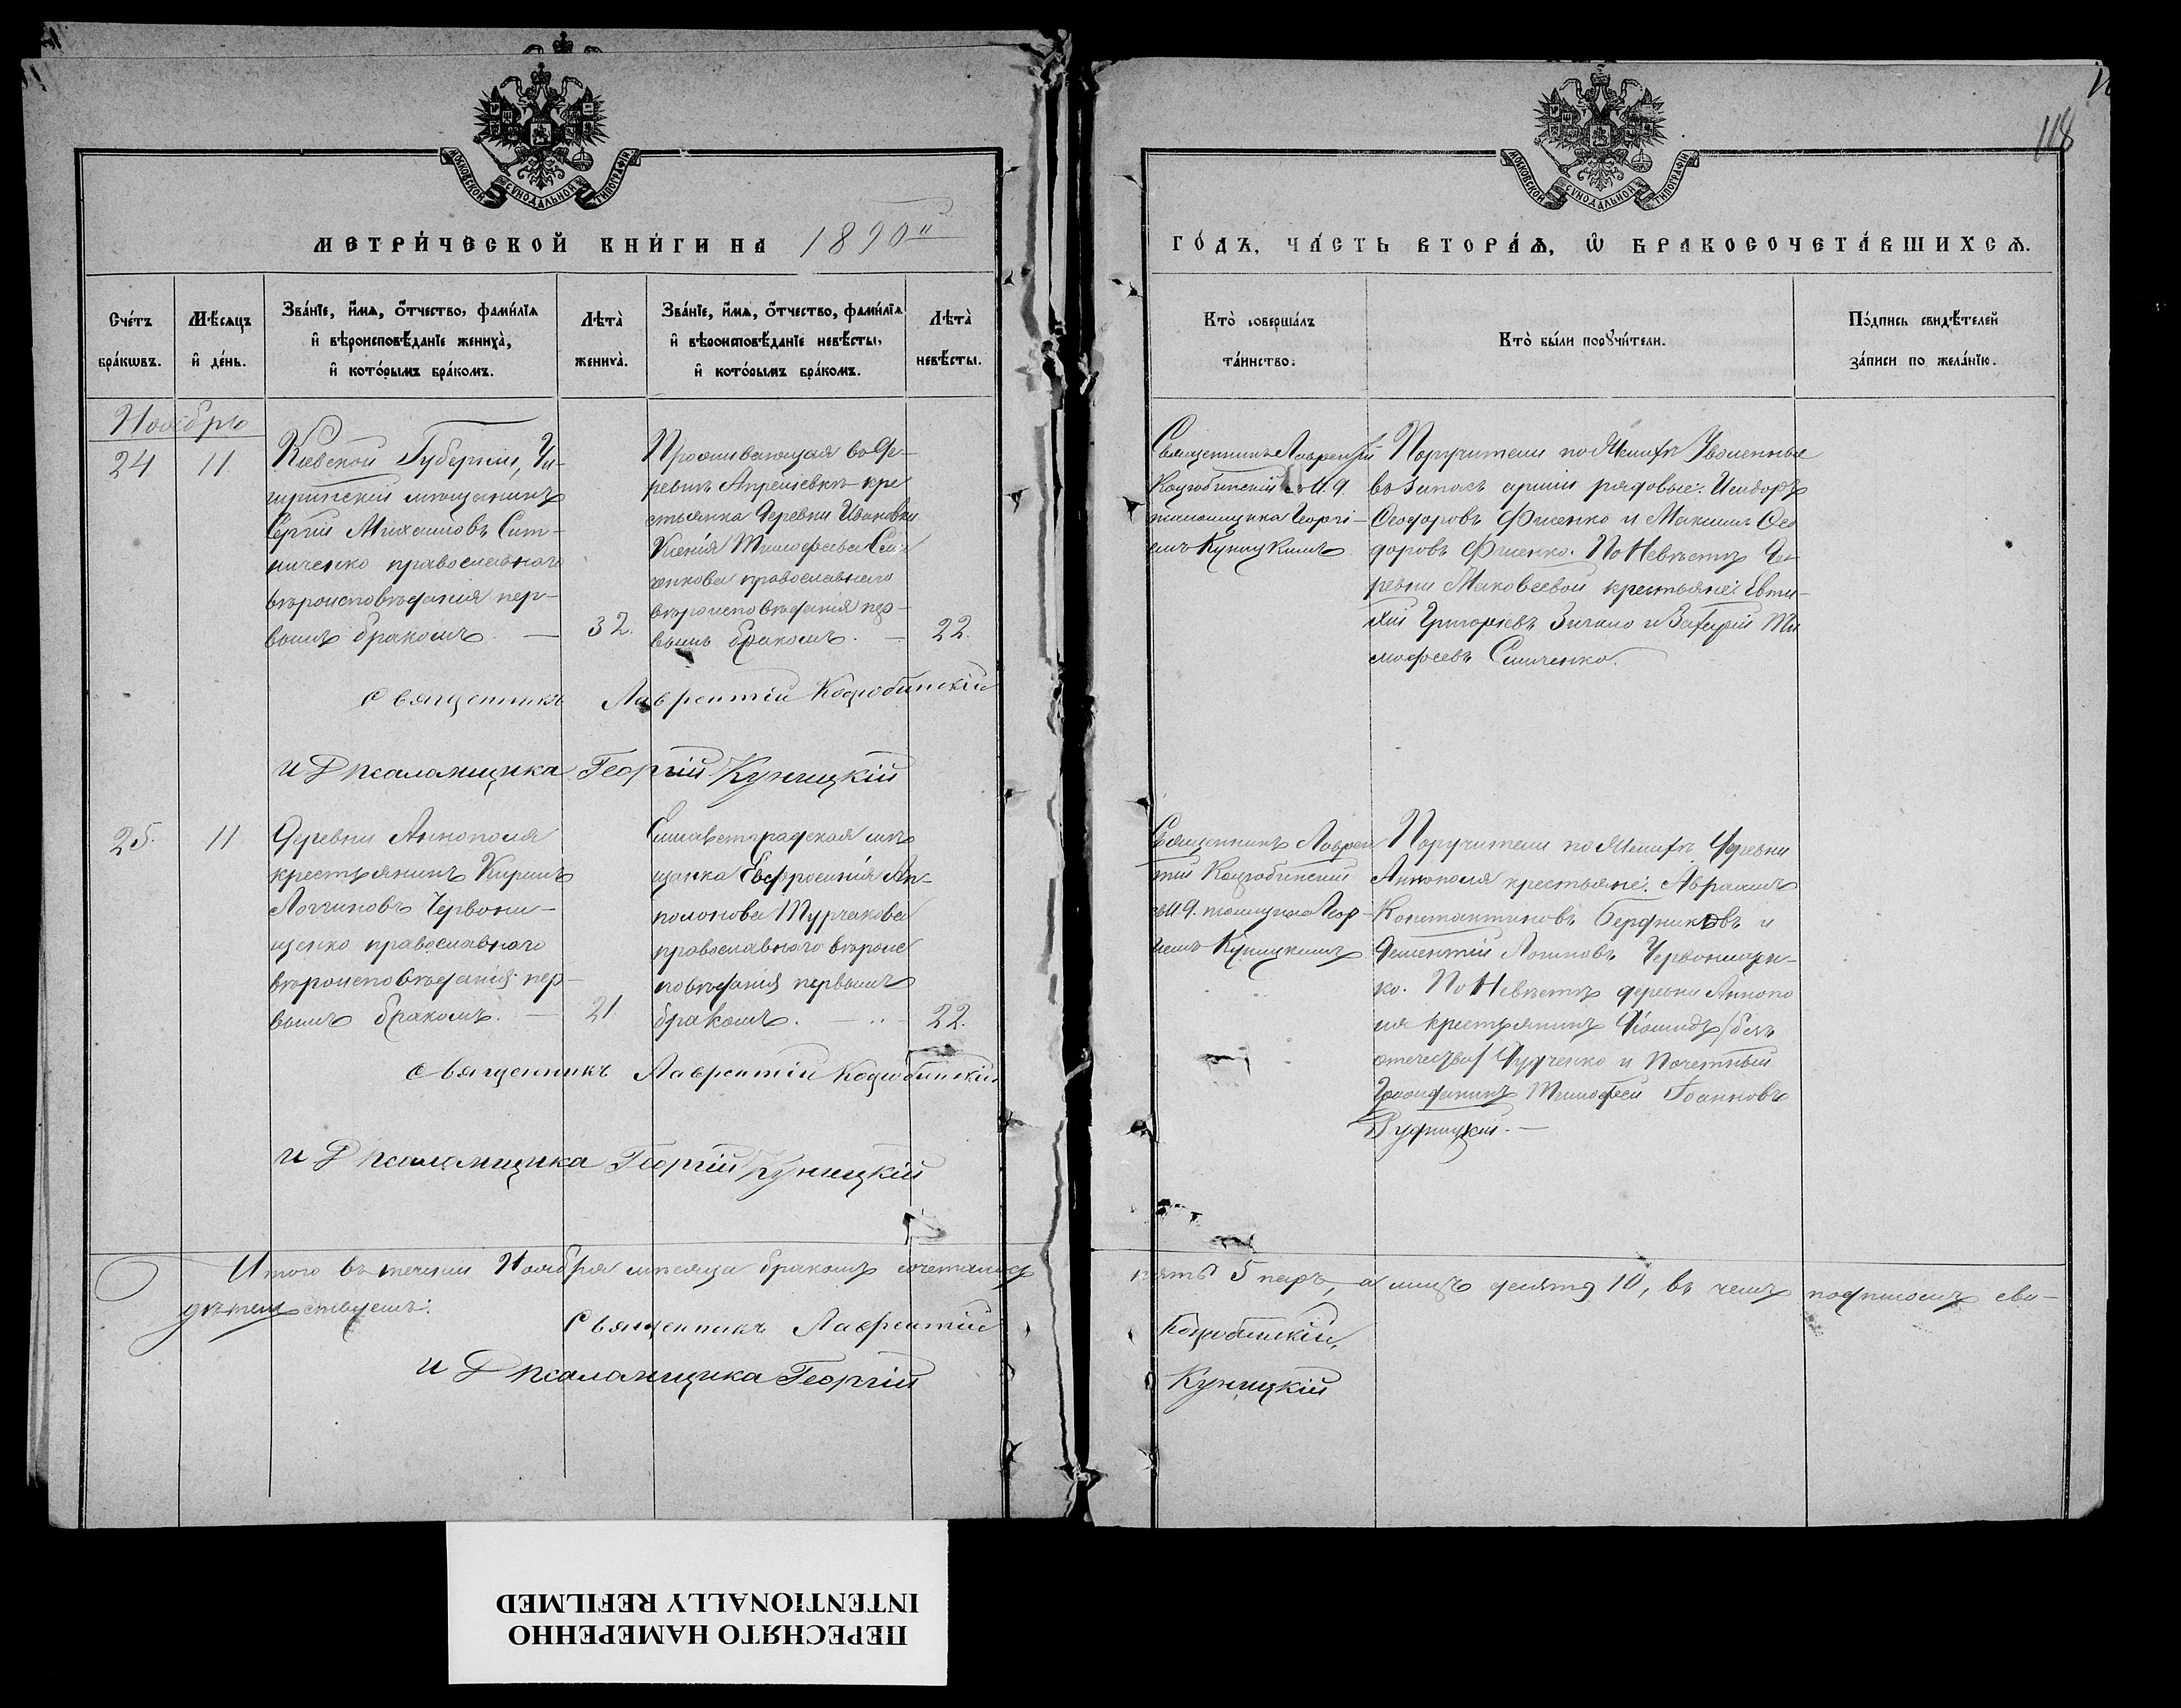 МОСКОВСКОЙ СѴНОДАЛЬНОЙ ТИПОГРАФІИ
МЕТРИ́ЧЕСКОЙ КНИ́ГИ НА 1890й
Сче́тъ бра́кѡвъ.
Мѣ́сяцъ и҆ де́нь.
Зва́нїе, и҆́мѧ, ѻ҆́тчество, фами́лїѧ
и҆ вѣроисповѣ́данїе жениха̀,
и҆ кото́рымъ бра́комъ.
Лѣта̀ жениха̀.
Зва́нїе, и҆́мѧ, ѻ҆́тчество, фами́лїѧ
и҆ вѣроисповѣ́данїе невѣ́сты,
и҆ кото́рымъ бра́комъ.
Лѣта̀ невѣ́сты.
Ноябрь
24
11
Кіевской Губерніи, Чи-
гиринскій мѣщанинъ
Сергій Михаиловъ Сит-
ниченко православнаго
вѣроисповѣданія пер-
вымъ бракомъ. —
32.
Проживающая въ де-
ревнѣ Апрелевкѣ кре
стьянка деревни Ивановки
Ксенія Тимофеева
православнаго
вѣроисповѣданія пер-
вымъ бракомъ. —
22.
Священникъ Лаврентій Коцюбинскій
и Д псаломщика Георгій Куницкій
25.
11
Деревни Аннополя
крестьянинъ Кириллъ
Логгиновъ Червони-
щенко православнаго
вѣроисповѣданія пер-
вымъ бракомъ. —
21.
Елисаветградская мѣ
щанка Евфросинія Ап-
полонова Турчакова
православнаго вѣроис
повѣданія первымъ
бракомъ. —
22.
Священникъ Лаврентій Коцюбинскій
и Д псаломщика Георгій Куницкій
Итого въ теченіи Ноября мѣсяца бракомъ сочеталось
дѣтельствуемъ:
Священникъ Лаврентій
и Д псаломщика Георгій
118
МОСКОВСКОЙ СѴНОДАЛЬНОЙ ТИПОГРАФІИ
ГО́ДЪ, ЧА́СТЬ ВТОРА́Ѧ, Ѽ БРАКОСОЧЕТА́ВШИХСѦ.
Кто̀ соверша́лъ та́инство.
Кто̀ бы́ли порꙋчи́тели.
По́дпись свидѣ́телей за́писи по жела́нїю.
Священникъ Лаврентій
Коцюбинскій съ И. д.
псаломщика Георгі-
емъ Куницкимъ
Поручители по Женихѣ Уволенные
въ запасъ арміи рядовые: Исидоръ
Феодоровъ Фисенко и Максимъ Фео
доровъ Фисенко. По Невѣстѣ де-
ревни Маковеевой крестьяне: Евти-
хій Григоріевъ и Ти
мофеевъ
Священникъ Лаврен
тій Коцюбинскій
съ И. д. псаломщика Геор-
гіемъ Куницкимъ
Поручители по Женихѣ Деревни
Аннополя крестьяне: Авраамъ
Константиновъ Бердниковъ и
Дементій Логиновъ Червонищен-
ко. По Невѣстѣ деревни Аннопо
ля крестьянинъ (безъ
отечества) и Почетный
Гражданинъ Тимофей Іоанновъ
Рудницкій. —
пять 5 паръ, а лицъ десять 10, въ чемъ подписомъ сви-
Коцюбинскій,
Куницкій
ПЕРЕСНЯТО НАМЕРЕННО
INTENTIONALLY REFILMED